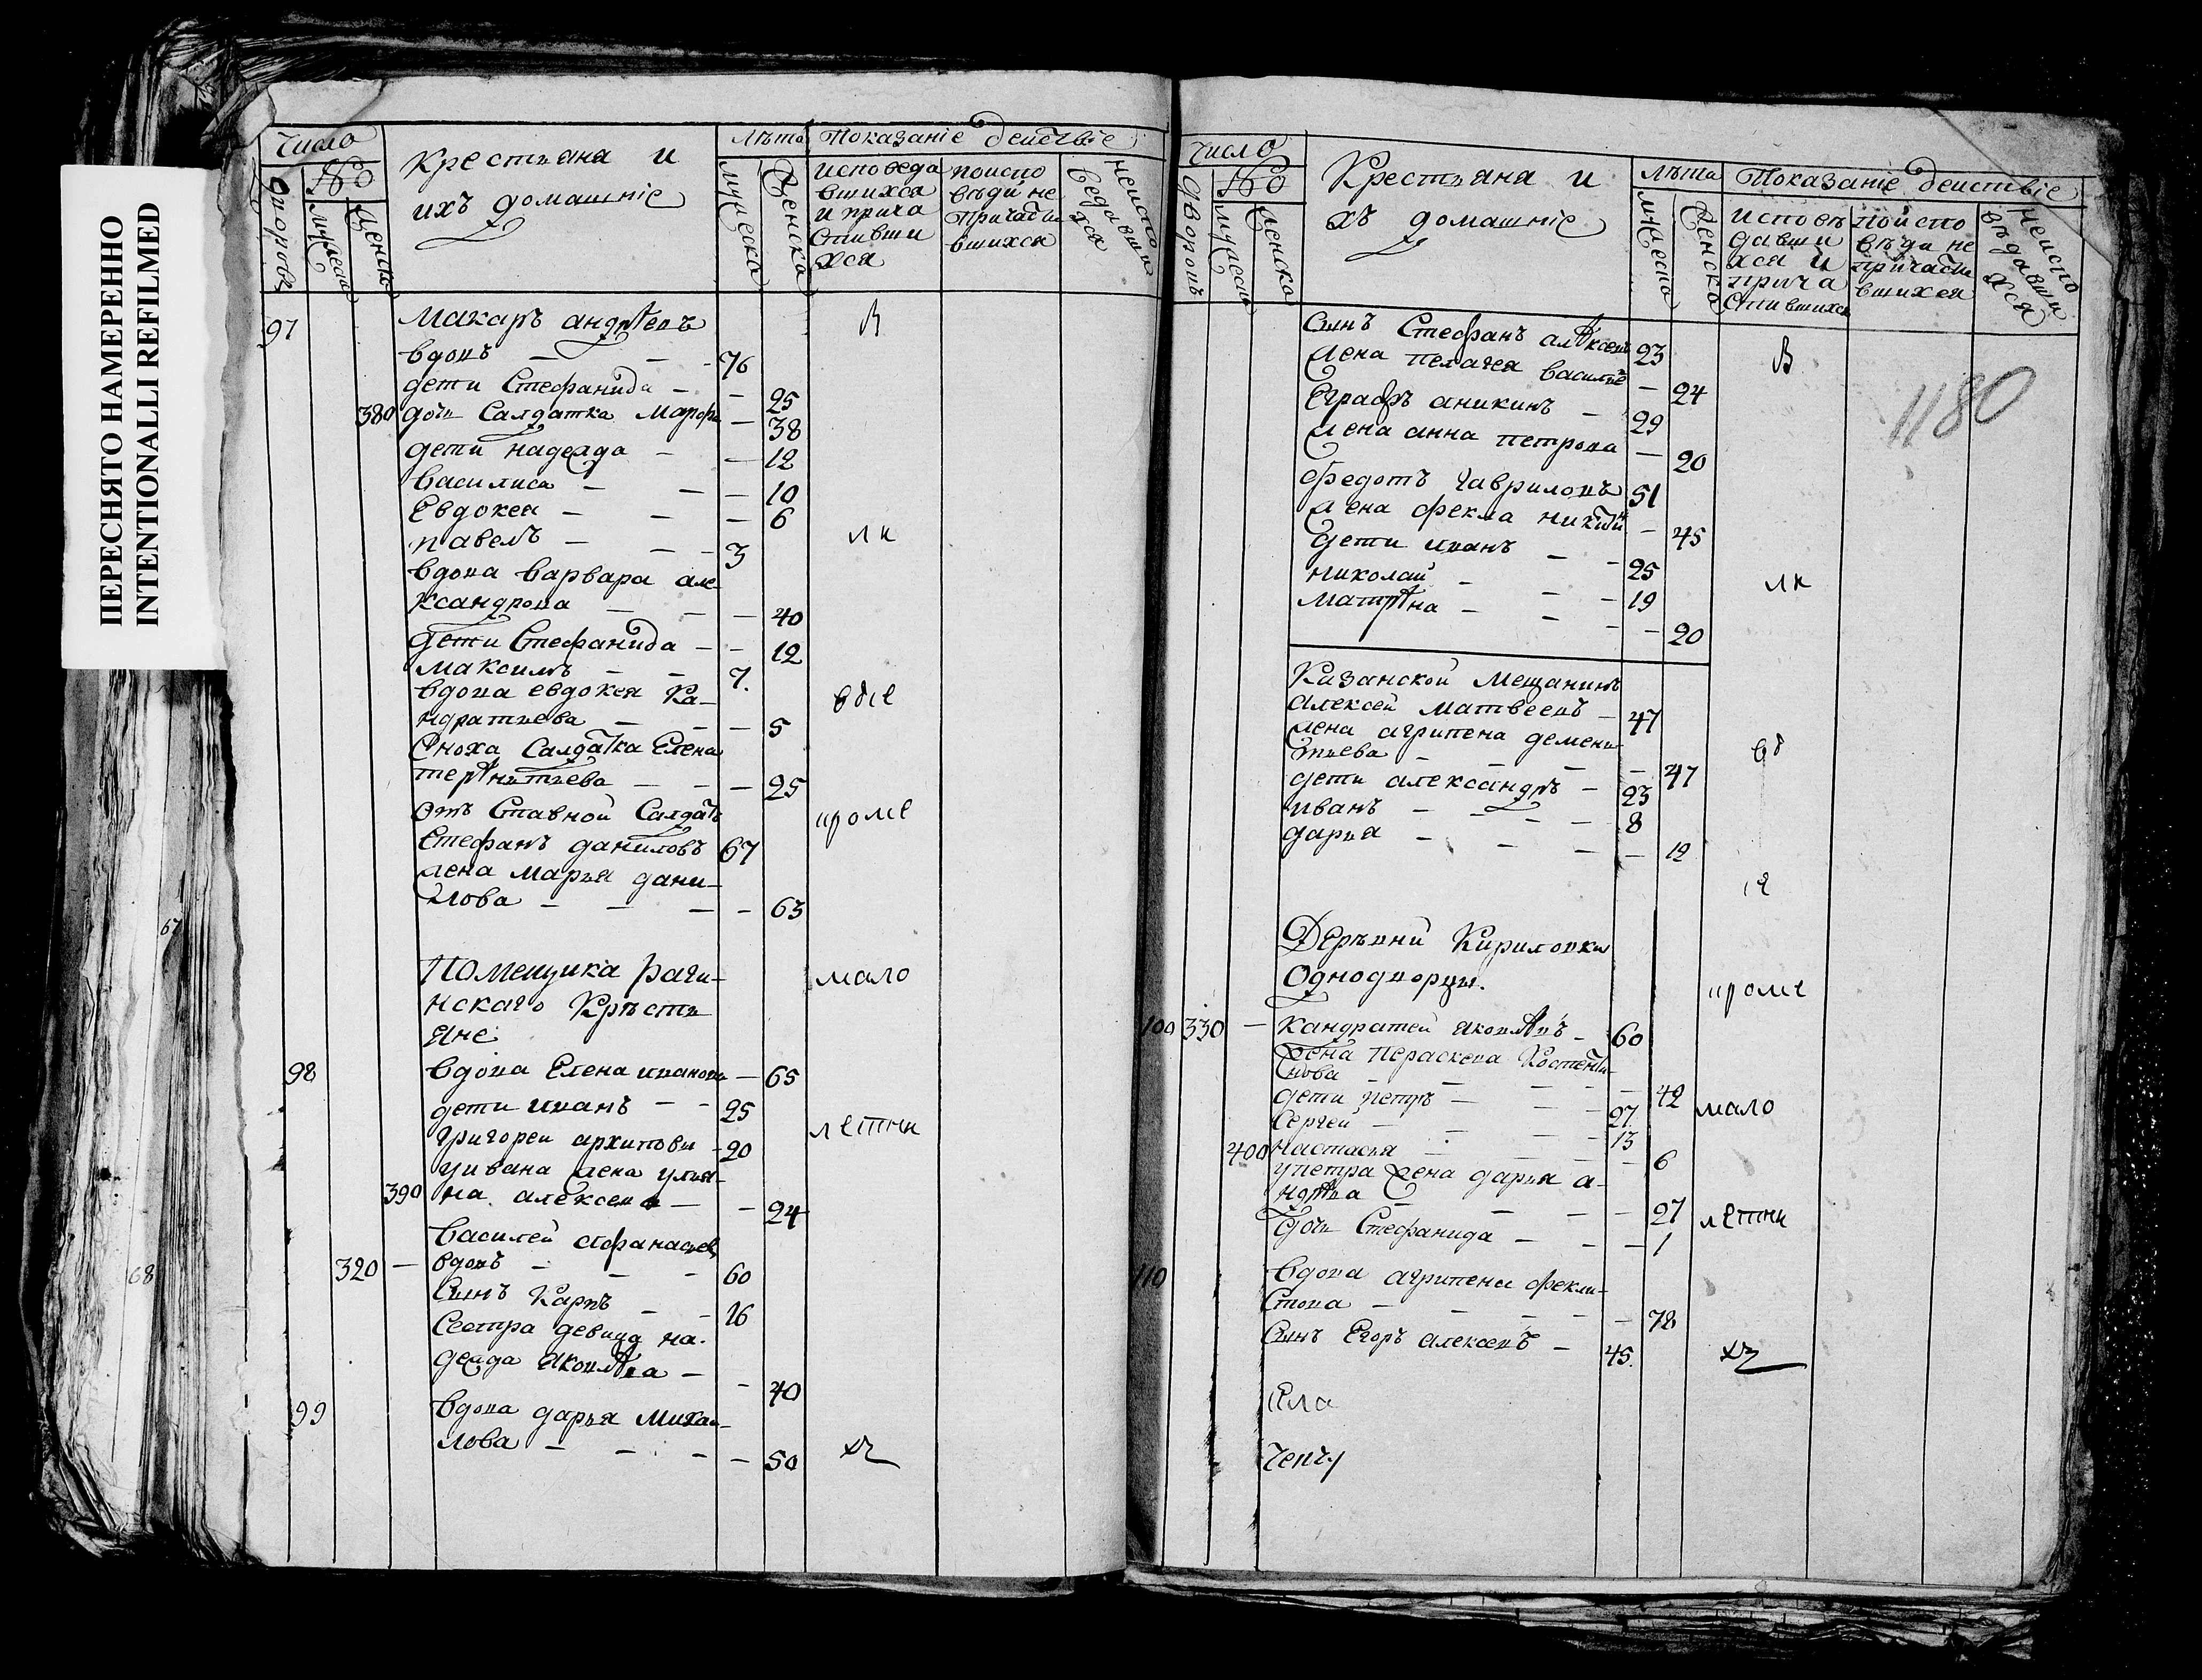 ПЕРЕСНЯТО НАМЕРЕННО
INTENTIONALLI REFILMED
67
68
Число
№
дворовъ
мужеска
женска
Крестьяна и
ихъ домашніе
Лѣта
мужеска
женска
Показаніе действіе
исповеда
вшихся
и прича
стивши
хся
поиспо
вѣди не
причасти
вшихся
неиспо
ведавши
хся
97 Макаръ андрѣевъ В
вдовъ — — - 76
дети Стефанида — - 25
380 дочь Салдатка Марфа — 38
дети надежда — — 12
василиса — — — 10
Евдокея — — — 6
павелъ — — - 3 лк
вдова варвара але-
ксандрова — — — 40
дети Стефанида — - 12
максимъ — — 7.
вдова евдокея Ка- вбіе
ндратьева — — — 5
Сноха Салдатка Елена
терѣнтьева — — — 25
отъ Ставной Салдатъ проме
Стефанъ даниловъ 67
жена Марья дани-
лова — — — - 63
Помещика раги- мало
нскаго Крѣстья
яне
98 вдова Елена иванова — 65
дети иванъ — - 25
григореи архиповы - 20 летни
уивана жена улья-
390 на алексева — - 24
василеи афанасьевъ
320 — вдовъ — — - 60
Сынъ Карпъ — - 16
Сестра девица на-
дежда яковлѣва — - 40
99 вдова дарья Михаи-
лова — — - — 50 хъ
Число
№
дворовъ
мужеска
женска
Крестьяна и
хъ домашніе
Лѣта
мужеска
женска
Показаніе деиствіе
исповѣ
давши
хся и
прича
стившихся
поиспо
вѣди не
причасти
вшихся
неиспо
вѣдавши
хся
1180
Сынъ Стефанъ алѣксеевъ 23 В
жена пелагея василие — 24
Еграфъ аникинъ — 29
жена анна петрова — 20
федотъ гавриловъ 51
жена фекла никити - 45
дети иванъ — - 25
николаи — — - 19 лк
матрѣна — — - — 20
Казанской мещанинъ
алексеи матвеевъ — 47
жена агрипена демень вб
тьева — — — — 47
дети александръ — 23
иванъ — — — — 8
дарья — — — — 12
іе
Дерѣвни Кириловки
Однодворцы. проме
100 330 — Кандратеи яковлѣвъ — 60
жена Пераскева Костенти-
нова — — — — 42
дети петръ — — - 27. мало
Сергеи — — — - 13
400 настасья — — - 6
упетра жена дарья а-
ндрѣва — — — — 27 летни
дочь Стефанида — - — 1
110 вдова агрипена фекли-
стова — — — — 78
Сынъ Егоръ алексеевъ — 45. хъ